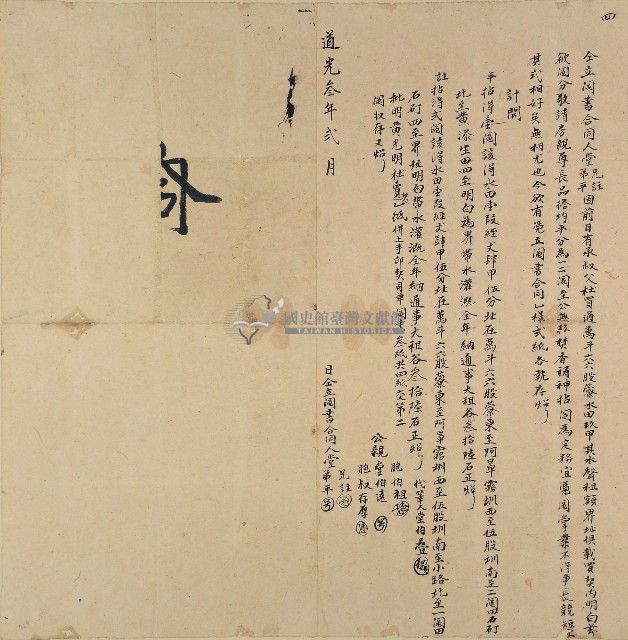 四
仝立鬮書合同人堂兄註弟平因前日有承叔父杜買過萬斗六六股藔水田玖甲其水聲租額界址俱載買契內明白玆
欲鬮分敬請房親尊長品搭均平分為一二鬮至公無私焚香禱神拈鬮為定務宜憑鬮掌業不得爭長競短
其式相好矣無相尤也今欲有憑立鬮書合同一樣弍紙各執存炤
計開
平拈得壹鬮該得水田壹段經丈肆甲伍分址在萬斗六六股藔東至阿罩霧圳西至伍股圳南至二鬮田石矴
北至黃添生田四至明白為界帶水灌溉全年納通事大租谷叁拾陸石正炤
註拈得弍鬮該得水田壹段經丈肆甲伍分址在萬斗六六股藔東至阿罩霧圳西至伍股圳南至小路北至一鬮田
石矴四至界址明白帶水灌溉全年納通事大租谷叁拾陸石正炤
批明黃光明杜賣契一紙併上手印契司單叁紙共四紙交第二
鬮收存又炤
代筆人堂伯
胞伯祖
公親堂伯遠
胞叔存厚
道光叁年弍月 日仝立鬮書合同人堂兄註弟平
國史館臺灣文獻館
TAIWAN HISTORICA